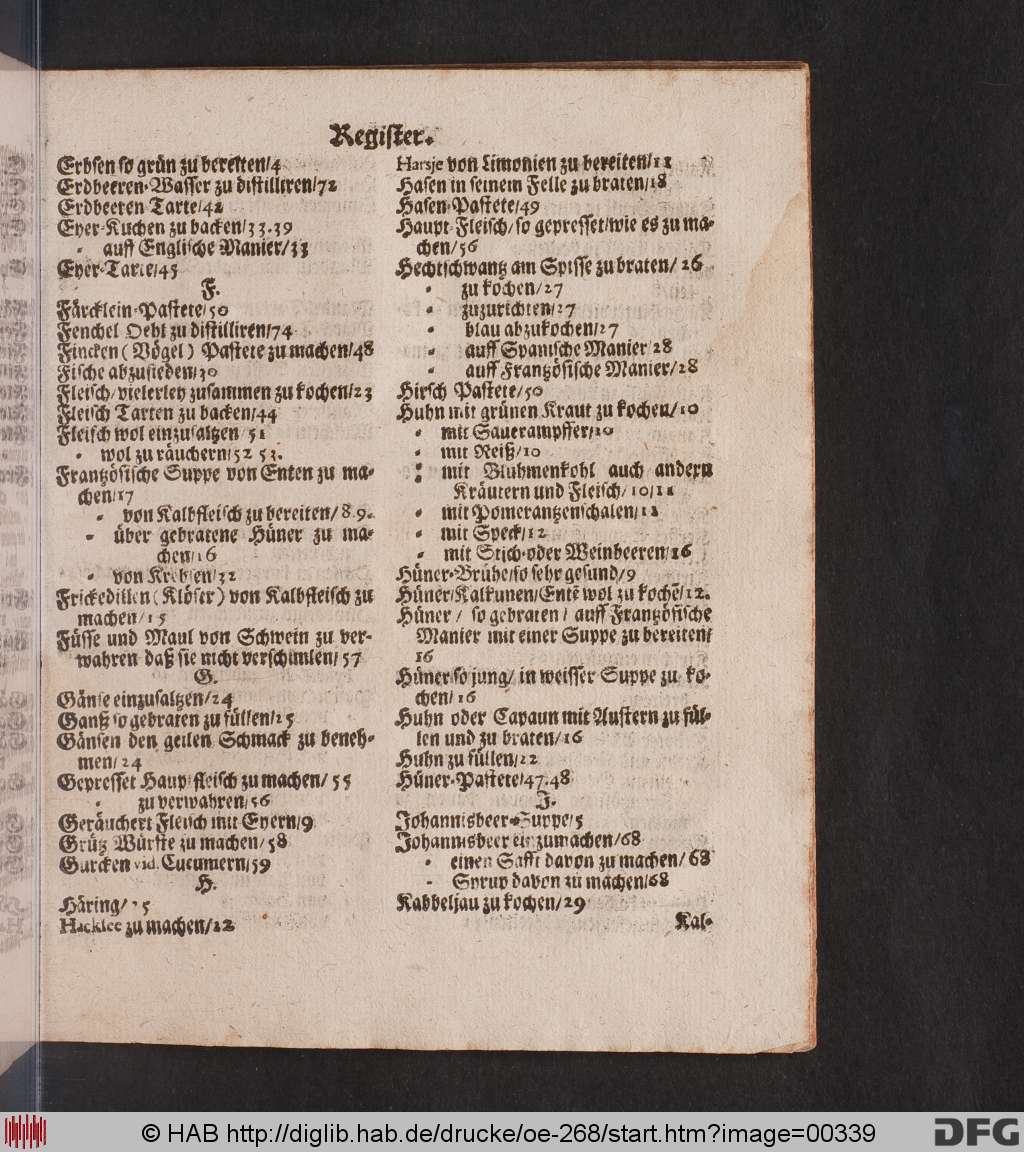 Register.
Erbsen so grün zu bereiten/4
Erdbeeren-Wasser zu distilliren/72
Erdbeeren Tarte/42
Eyer-Kuchen zu backen/33.39
- auff Englische Manier/33
Eyer-Tarte/45
F.
Färcklein-Pastete/50
Fenchel Oehl zu distilliren/74
Fincken (Vögel) Pastete zu machen/48
Fische abzusieden/30
Fleisch/vielerley zusammen zu kochen/23
Fleisch Tarten zu backen/44
Fleisch wol einzusaltzen/51
- wol zu räuchern/52 53.
Frantzösische Suppe von Enten zu ma-
chen/17
- von Kalbfleisch zu bereiten/8 9.
- über gebratene Hüner zu ma-
chen/16
- von Krebsen/32
Frickedillen (Klöser) von Kalbfleisch zu
machen/15
Füsse und Maul von Schwein zu ver-
wahren daß sie nicht verschimlen/57
G.
Gänse einzusaltzen/24
Ganß so gebraten zu füllen/25
Gänsen den geilen Schmack zu beneh-
men/24
Gepresset Haupt fleisch zu machen/55
- zu verwahren/56
Geräuchert Fleisch mit Eyern/9
Grütz Würste zu machen/58
Gurcken vid. Cucumern/59
H.
Häring/25
Hacklee zu machen/12
Harsje von Limonien zu bereiten/11
Hasen in seinem Felle zu braten/18
Hasen-Pastete/49
Haupt-Fleisch/so gepresset/wie es zu ma-
chen/56
Hechtschwantz am Spisse zu braten/26
- zu kochen/27
- zuzurichten/27
- blau abzukochen/27
- auff Spanische Manier 28
- auff Frantzösische Manier/28
Hirsch Pastete/50
Huhn mit grünen Kraut zu kochen/10
- mit Sauerampffer/10
- mit Reiß/10
: mit Bluhmenkohl auch andern
Kräutern und Fleisch/10/11
- mit Pomerantzenschalen/11
- mit Speck/12
- mit Stich-oder Weinbeeren/16
Hüner-Brühe/so sehr gesund/9
Hüner/Kalkunen/Entē wol zu kochē/12.
Hüner/ so gebraten/ auff Frantzösische
Manier mit einer Suppe zu bereiten/
16
Hüner/so jung/ in weisser Suppe zu ko-
chen/16
Huhn oder Capaun mit Austern zu fül-
len und zu braten/16
Huhn zu füllen/22
Hüner-Pastete/47.48
J.
Johannisbeer-Suppe/5
Johannisbeer einzumachen/68
- einen Safft davon zu machen/68
- Syrup davon zu machen/68
Kabbeljau zu kochen/29
Kal-
© HAB http://diglib.hab.de/drucke/oe-268/start.htm?image=00339
DFG